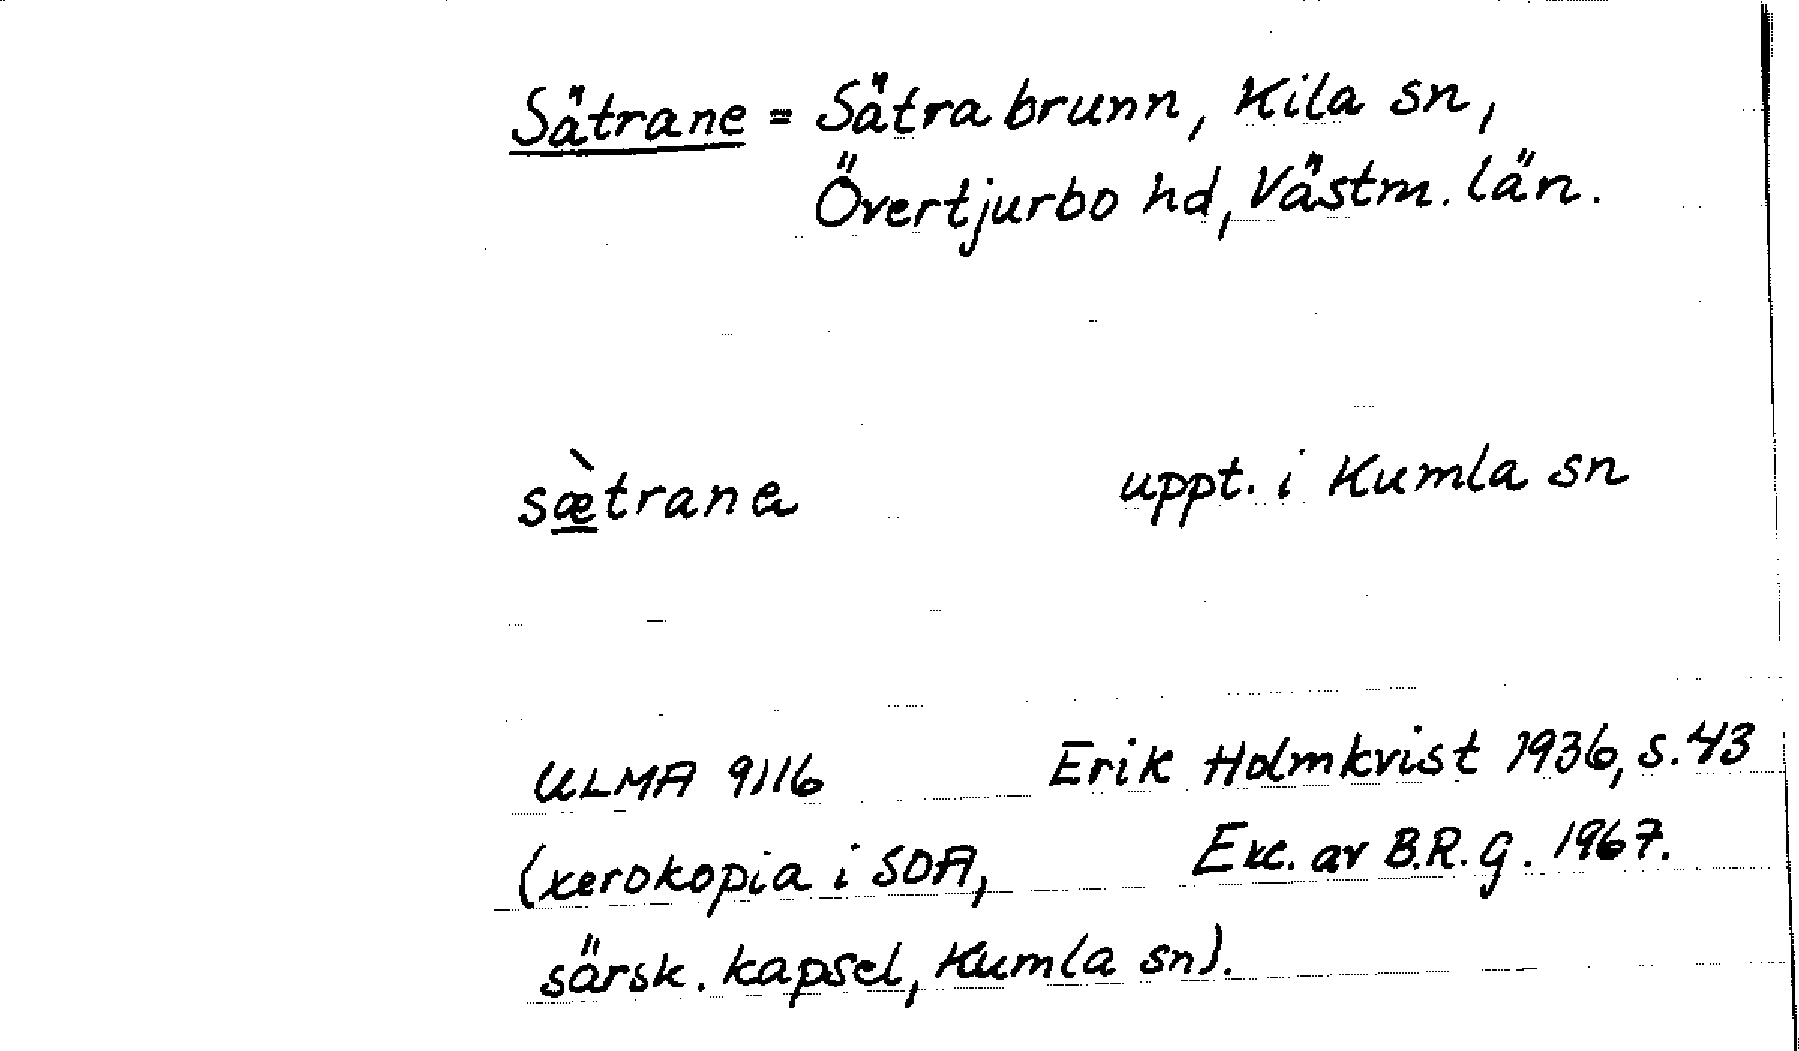 Sätrane = Sätra brunn, Kila sn,
Övertjurbo hd, Västm. län.
sæ̀trana uppt. i Kumla sn
ULMA 9116 Erik Holmkvist 1936, s. 43
(xerokopia i SOA, Exc. av B.R.G. 1967.
särsk. kapsel, Kumla sn).